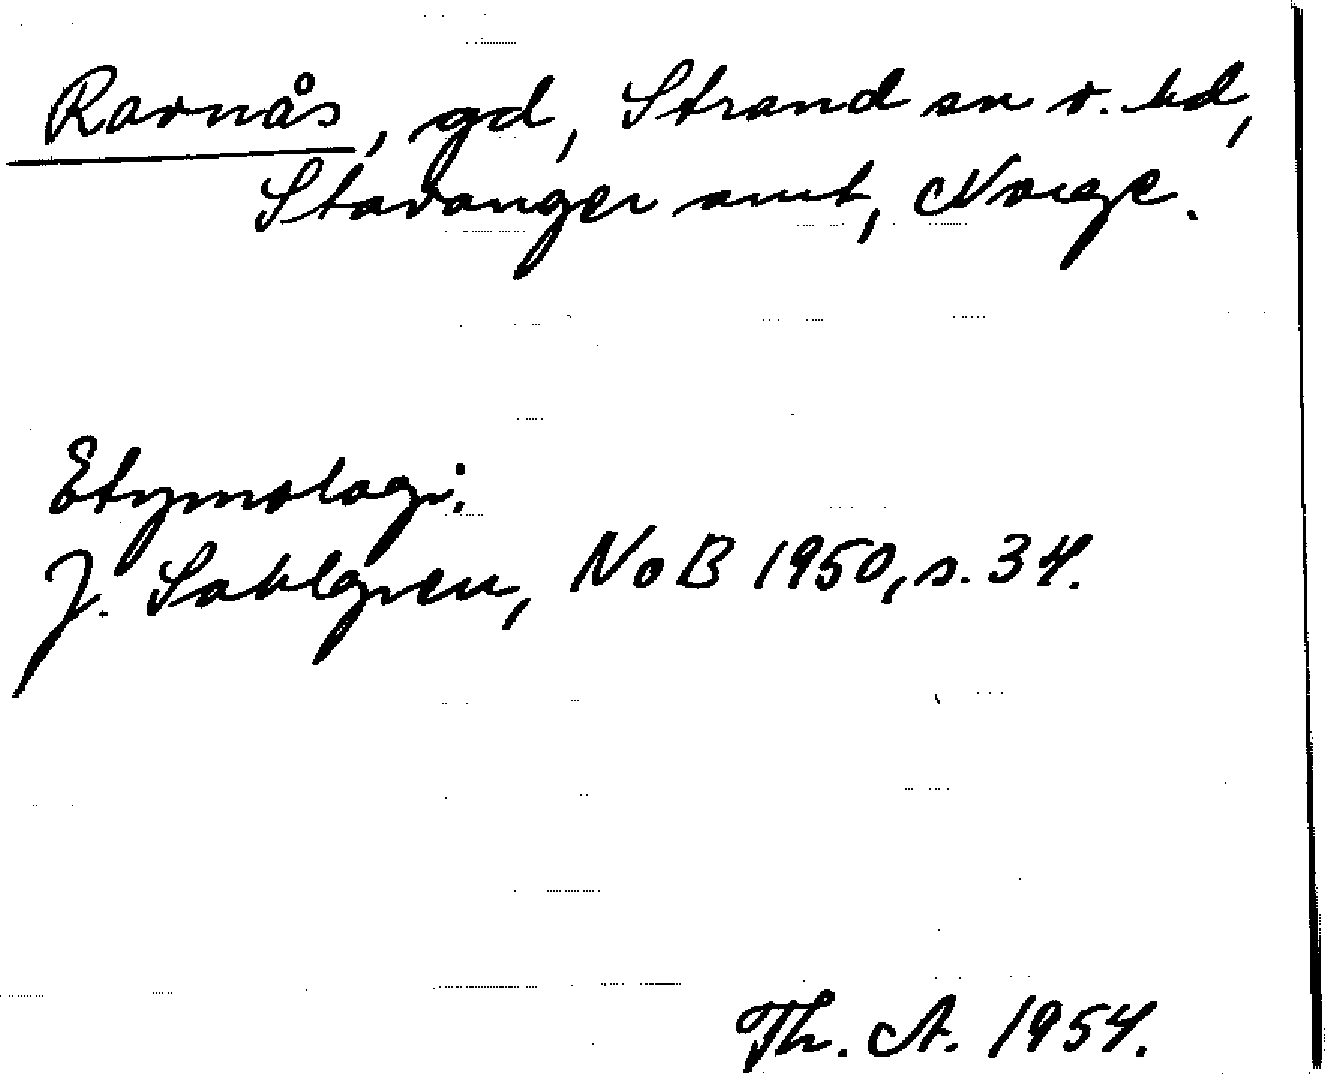 Ravnås, gd, Strand sn o. hd,
Stavanger amt, Norge.
Etymologi:
J. Sahlgren, NoB 1950, s. 34.
Th. A. 1954.